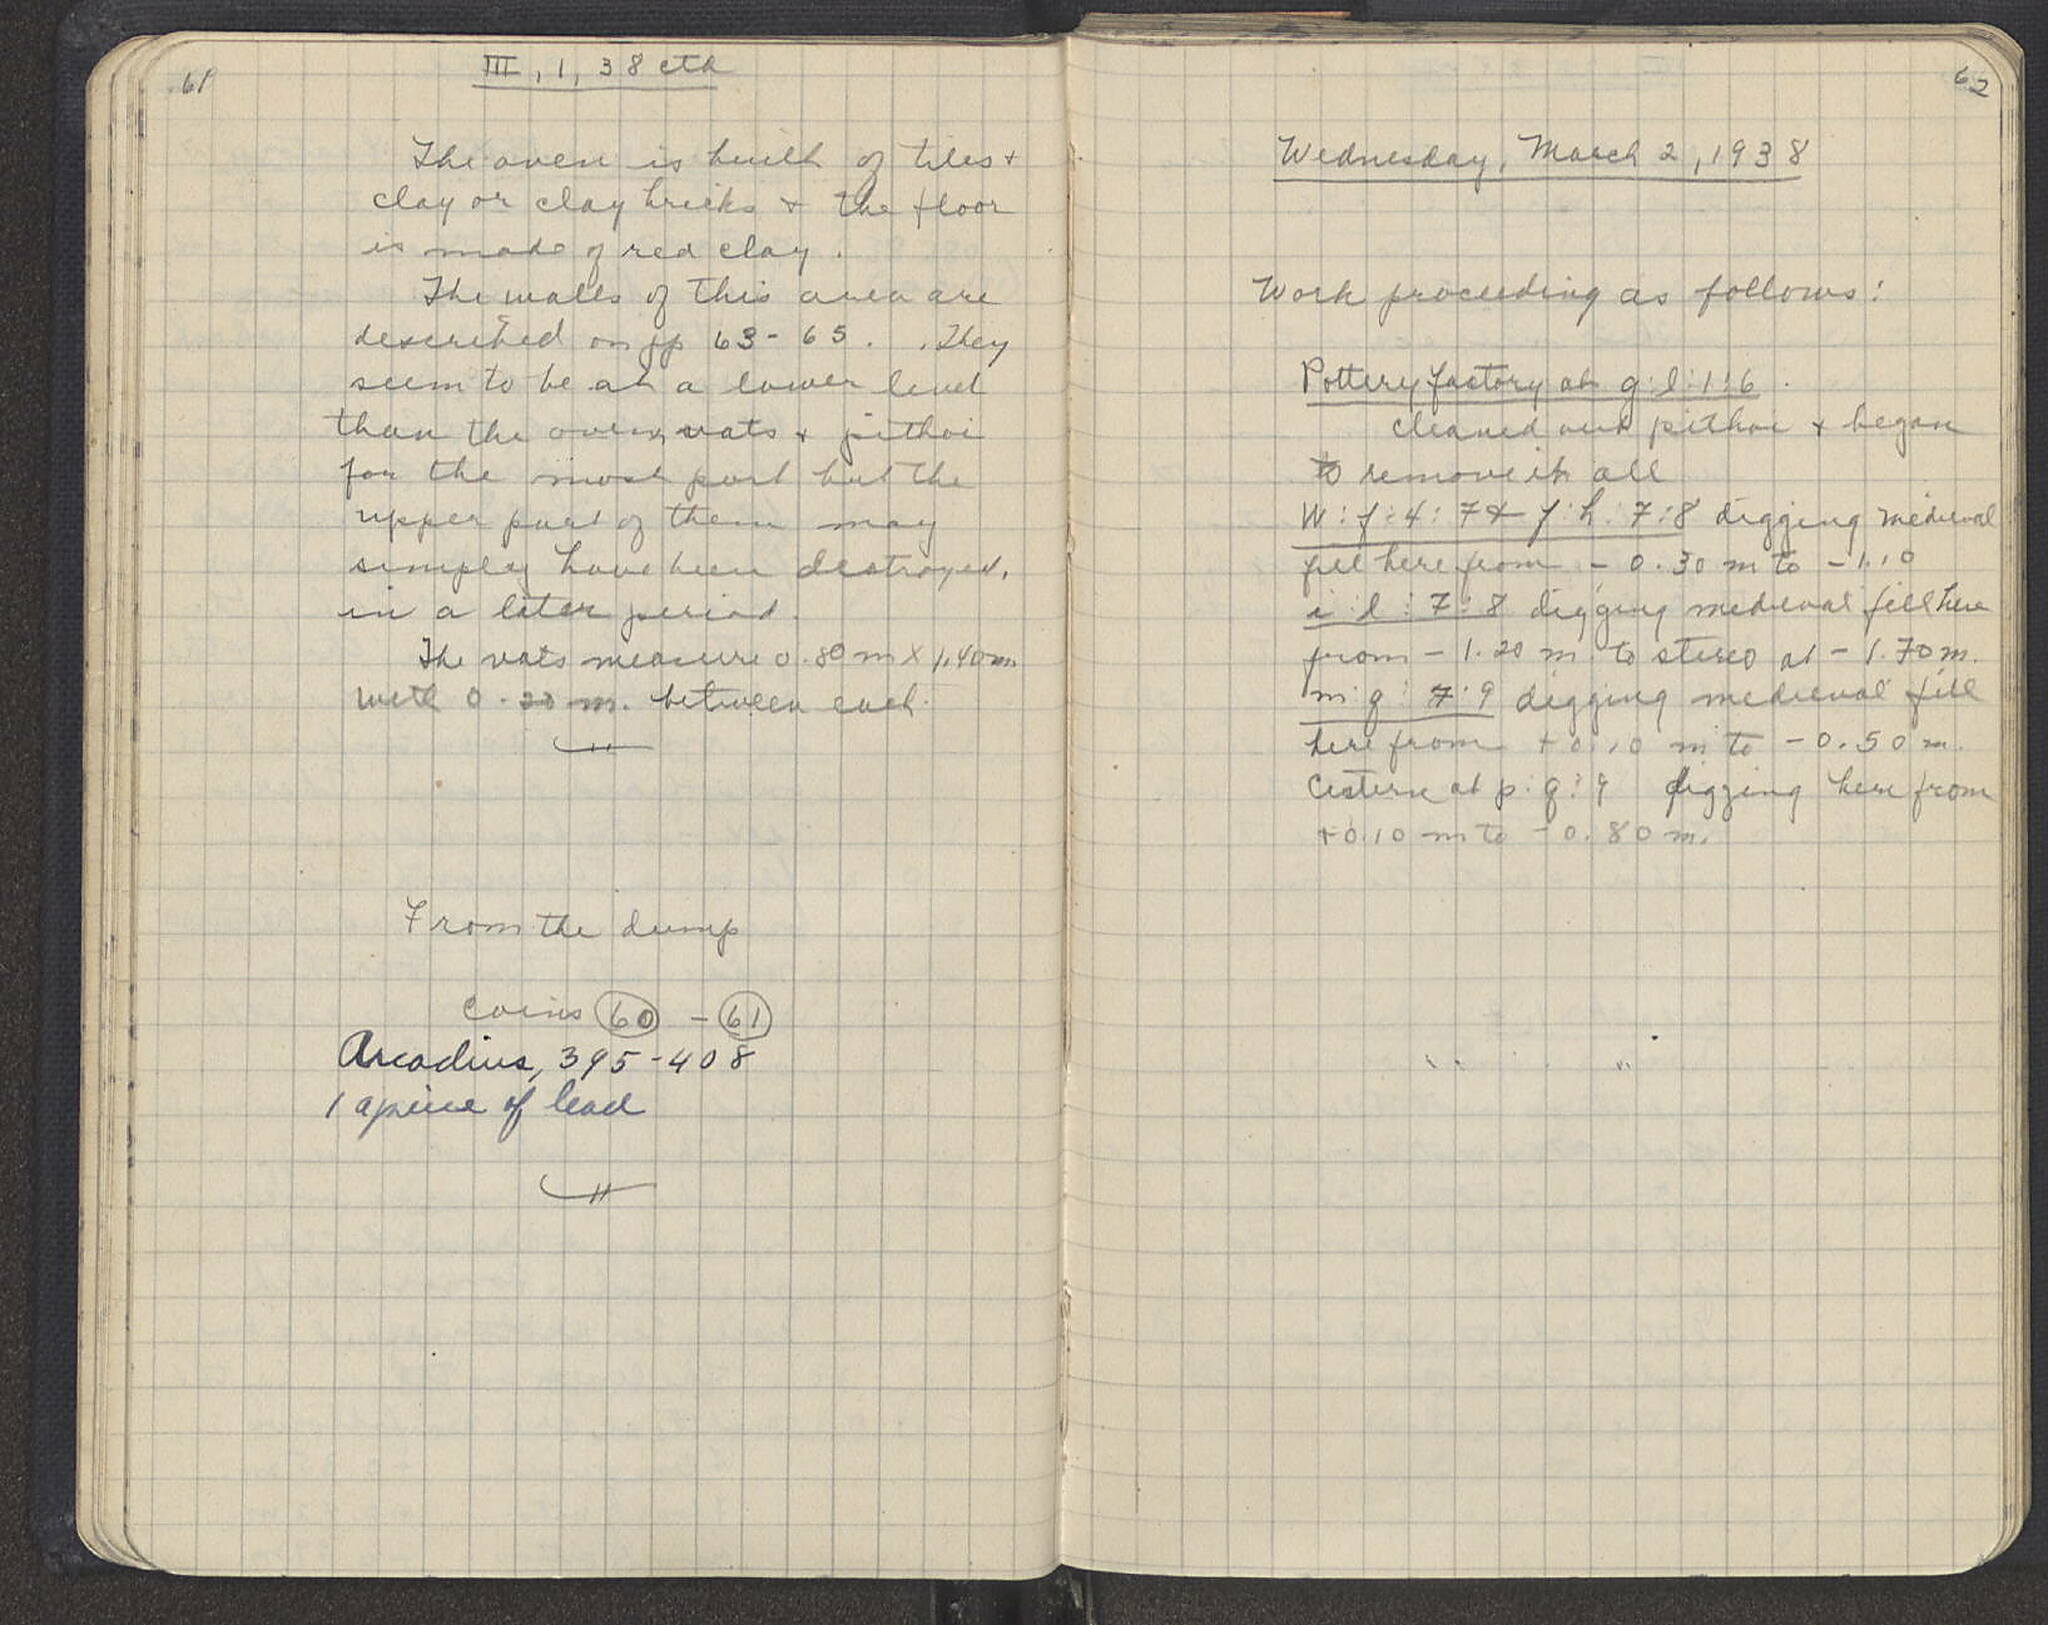 61
III, 1, 38 ctd
The oven is built of tiles +
clay or clay bricks + the floor
is made of red clay.
The walls of this area are
described on pp 63-65. They
seem to be at a lower level
than the oven, vats + pithoi
for the most part but the
upper part of them may
simply have been destroyed,
in a later period.
The vats measure 0.80 m X 1.40 m.
with 0.20 m. between each.
From the dump
coins 60 - 61
Arcadius, 395-408
1 a piece of lead
62
Wednesday, March 2, 1938
Work proceeding as follows:
Pottery factory at g:l:1:6.
cleaned out pithoi + began
to remove it all
W:f:4:7 + f:h:7:8 digging medieval
fill here from - 0.30 m to - 1.10
i:l:7:8 digging medieval fill here
from - 1.20 m. to stereo at - 1.70 m.
m:q:7:9 digging medieval fill
here from + 0.10 m to - 0.50 m.
Cistern at p:q:9 digging here from
+0.10 m to - 0.80 m.